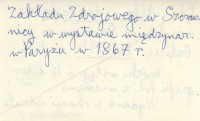 Zakładu Zdrojowego w Szczaw
nicy w wystawie międzynar.
w Paryżu w 1867 r.